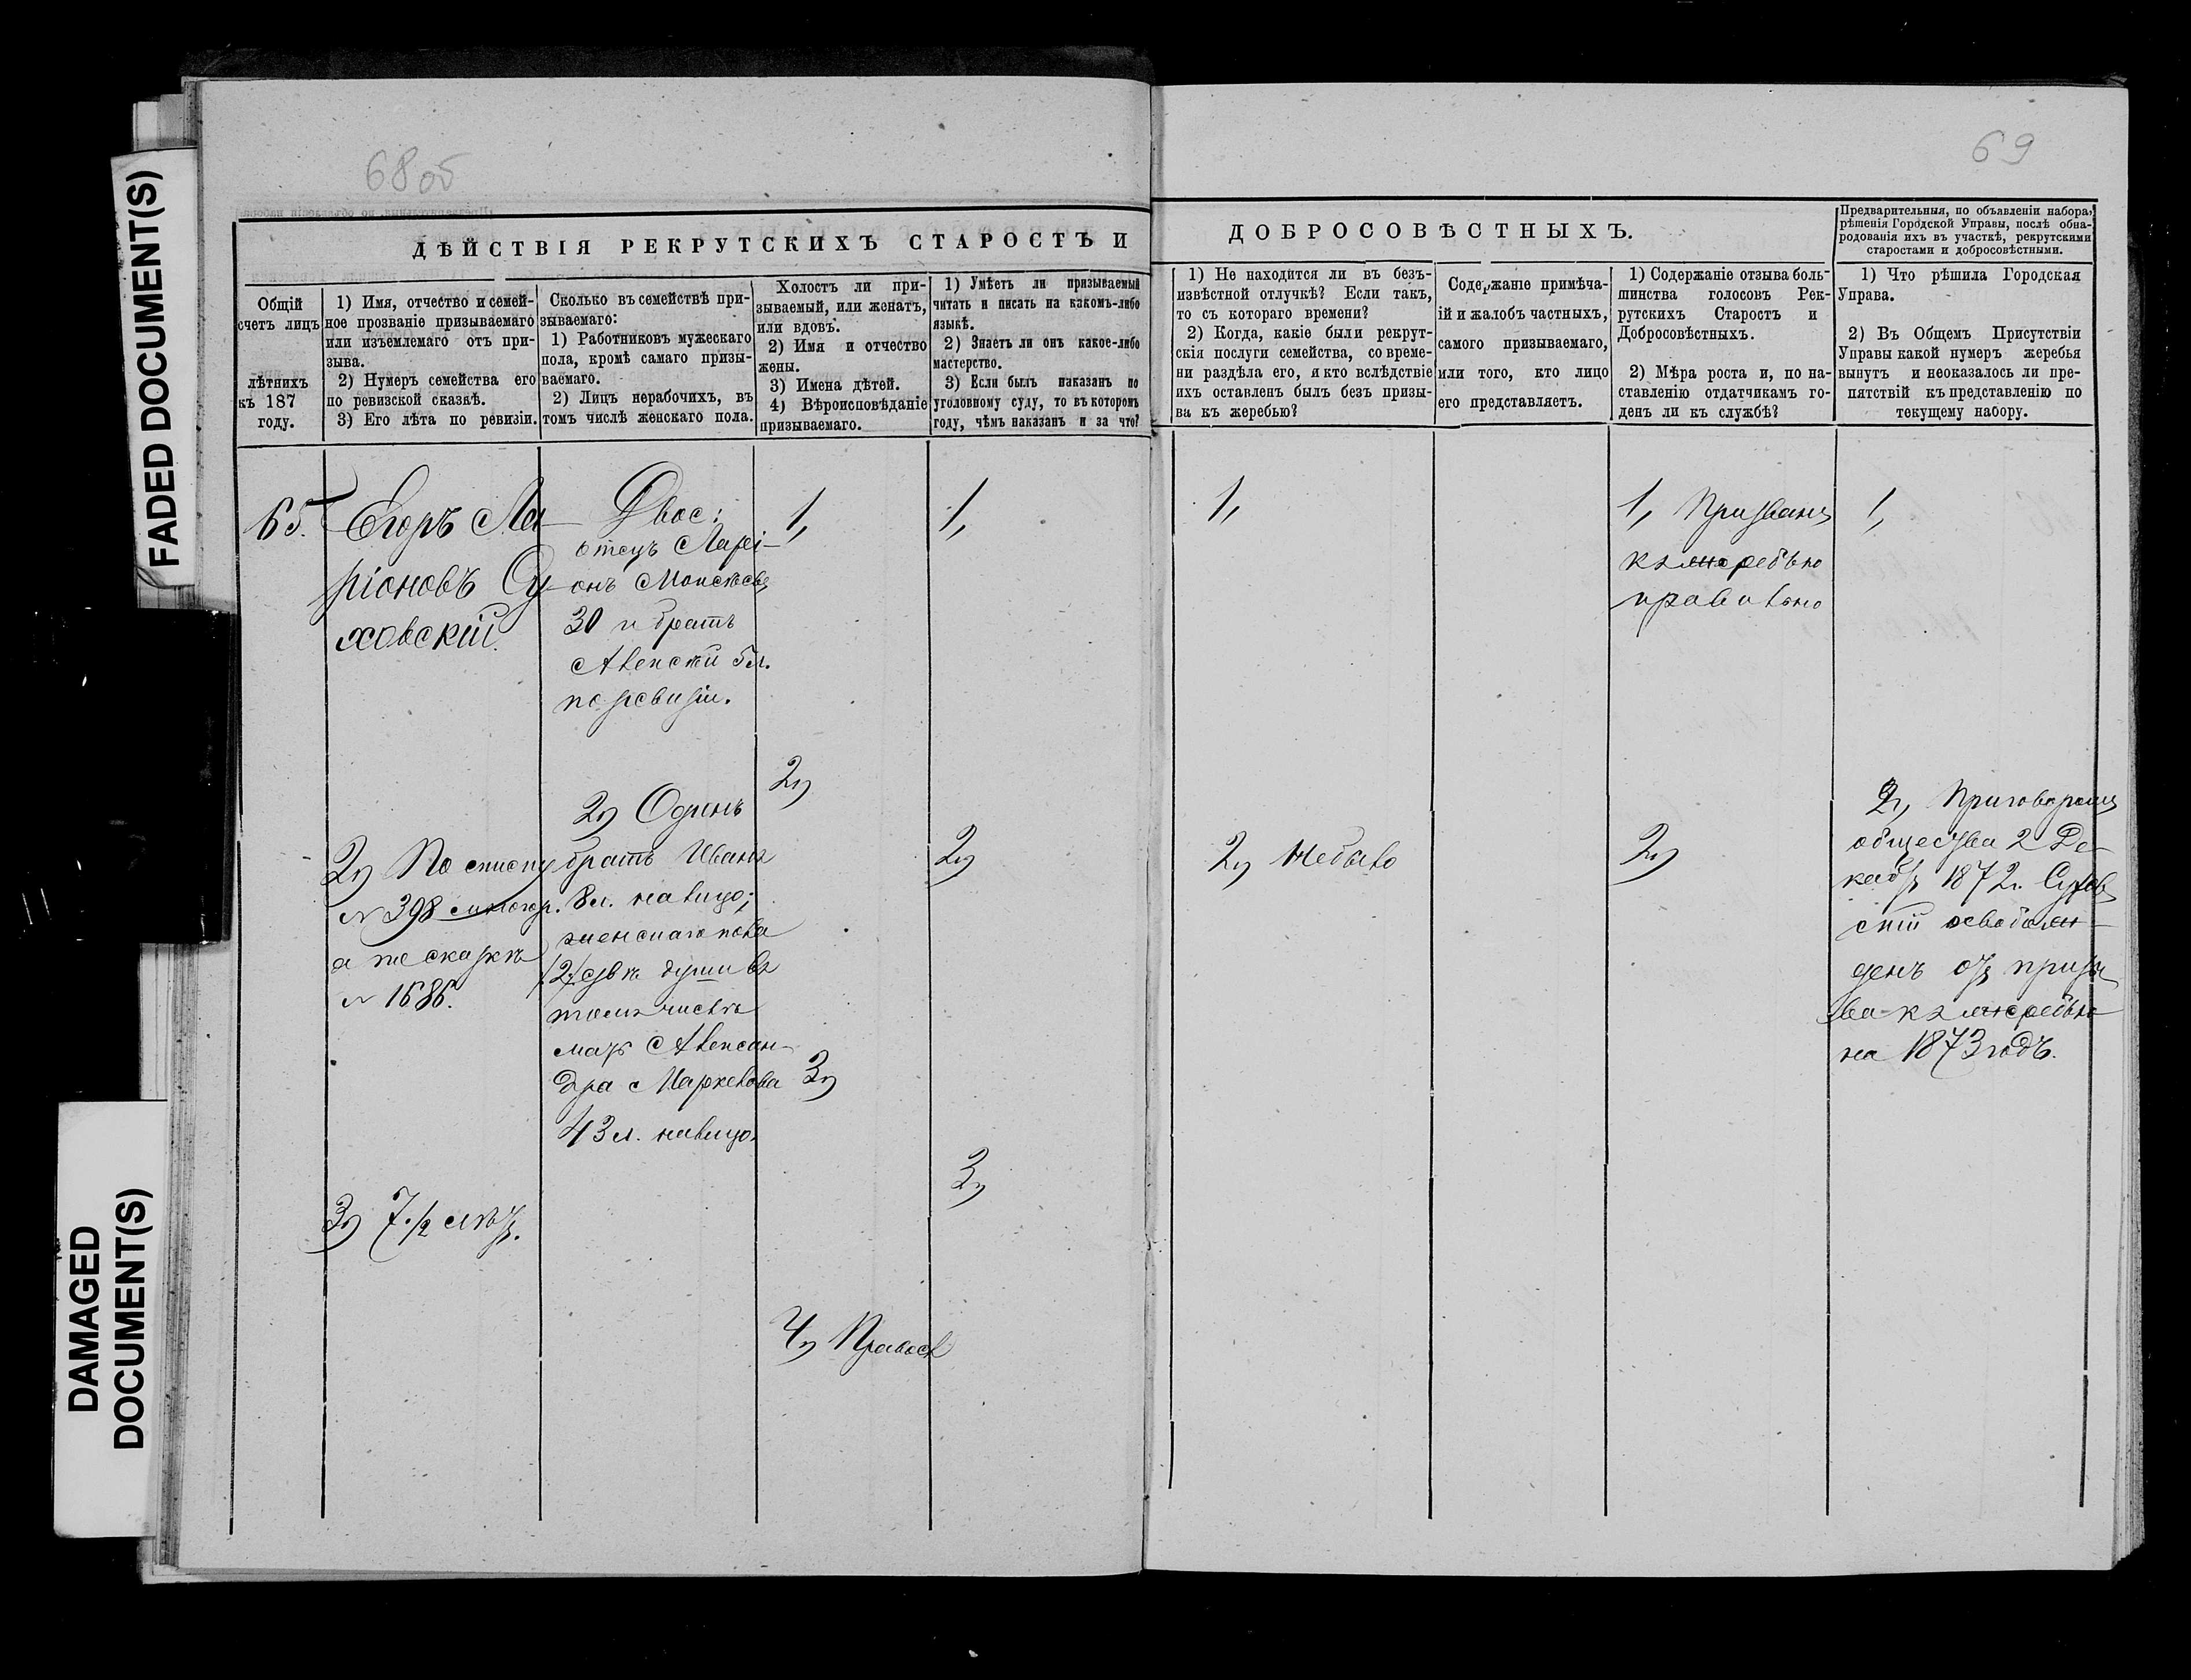 FADED DOCUMENT(S)
DAMAGED
DOCUMENT(S)
68 об
ДѢЙСТВІЯ РЕКРУТСКИХЪ СТАРОСТЪ И
Общій
счетъ лицъ
лѣтнихъ
къ 187
году.
1) Имя, отчество и семей-
ное прозваніе призываемаго
или изъемлемаго отъ при-
зыва.
2) Нумеръ семейства его
по ревизской сказкѣ.
3) Его лѣта по ревизіи.
Сколько въ семействѣ при-
зываемаго:
1) Работниковъ мужескаго
пола, кромѣ самаго призы-
ваемаго.
2) Лицъ нерабочихъ, въ
томъ числѣ женскаго пола.
Холостъ ли при-
зываемый, или женатъ,
или вдовъ.
2) Имя и отчество
жены.
3) Имена дѣтей.
4) Вѣроисповѣданіе
призываемаго.
1) Умѣетъ ли призываемый
читать и писать на какомъ-либо
языкѣ.
2) Знаетъ ли онъ какое-либо
мастерство.
3) Если былъ наказанъ по
уголовному суду, то въ которомъ
году, чѣмъ наказанъ и за что?
65.
Егоръ Ла-
ріоновъ Су-
ховскій.
2) По списку
№ 398
а по сказкѣ
№ 1686.
3) 7 1/2 лѣтъ.
Двое:
отецъ Ларі-
онъ Моисѣевъ
30 и братъ
Алексѣй 5 л.
по ревизіи.
2) Одинъ
братъ Иванъ
8 л. на лицо;
женскаго пола
/2/ двѣ души въ
томъ числѣ
мать Алексан-
дра Маркелова
43 л. на лицо.
1,
2)
3)
4) Правосл
1,
2)
3)
69
ДОБРОСОВѢСТНЫХЪ.
1) Не находится ли въ безъ-
извѣстной отлучкѣ? Если такъ,
то съ котораго времени?
2) Когда, какіе были рекрут-
скія послуги семейства, со време-
ни раздѣла его, я кто вслѣдствіе
ихъ оставленъ былъ безъ призы-
ва къ жеребью?
Содержаніе примѣча-
ій и жалобъ частныхъ,
самого призываемаго,
или того, кто лицо
его представляетъ.
1) Содержаніе отзыва боль-
шинства голосовъ Рек-
рутскихъ Старостъ и
Добросовѣстныхъ.
2) Мѣра роста и, по на-
ставленію отдатчикамъ го-
денъ ли къ службѣ?
Предварительныя, по объявленіи набора,
рѣшенія Городской Управы, послѣ обна-
родованія ихъ въ участкѣ, рекрутскими
старостами и добросовѣстными.
1) Что рѣшила Городская
Управа.
2) Въ Общемъ Присутствіи
Управы какой нумеръ жеребья
вынутъ и неоказалось ли пре-
пятствій къ представленію по
текущему набору.
1,
2) Небыло
1, Призванъ
къ жеребью
правильно
2)
1,
2, Приговоромъ
общества 2 Де-
кабр 1872 г. Сухов
скій освобож-
денъ отъ призы
ва къ жеребью
на 1873 годъ.